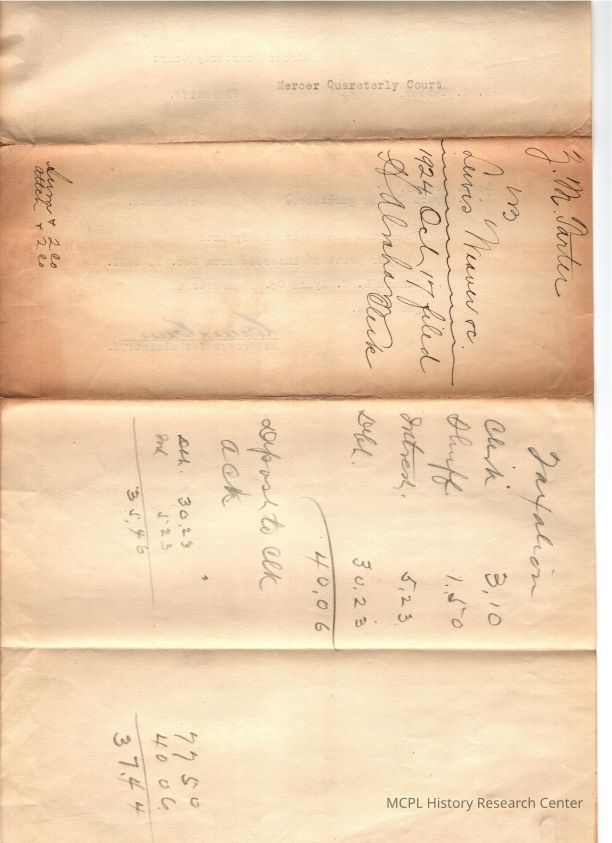 Mercer Quareterly Court
J. M. Carter
vs
Lewis Weaver &c.
1924 Oct. 17 filed
H. Abraham Clerk
Sum + 2 co
attch + 2 co
Taxation
Clerk 3,10
Sheriff 1.50
Interest. 5,23
Debt. 30,23
40,06
Deposit to Clk
ACK
Debt. 30,23
Int 5,23
35,46
77 50
40 06
37,44
MCPL History Research Center